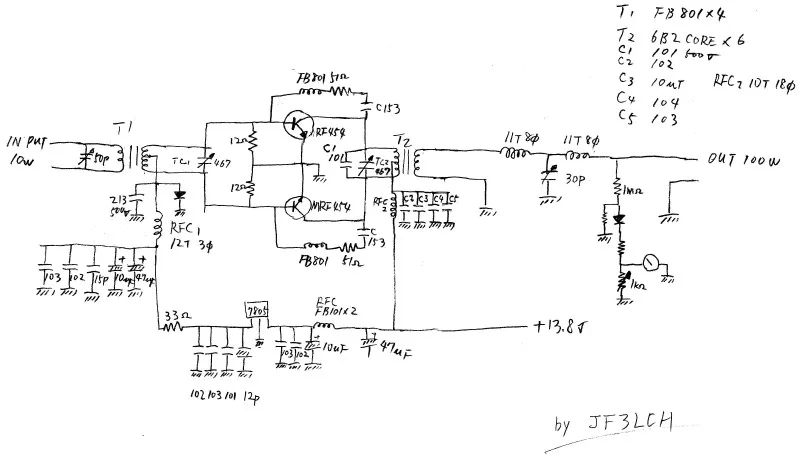 T1 FB801×4
T2 6B2 CORE×6
C1 101 500V
C2 102
C3 10uT RFC2 10T 18φ
C4 104
C5 103
FB801 51Ω
C153
T1
MRF454
T2
11T 8φ
11T 8φ
INPUT
10W
50p
12Ω
C1
101
TC1
467
TC2
467
OUT 100W
12Ω
30p
1MΩ
213
500V
MRF454
RFC
2
C2 C3 C4 C5
RFC1
12T 3φ
C
153
FB801 51Ω
103
102
15p
10up
47up
1kΩ
33Ω
7805
RFC
FB101×2
+13.8V
103
102
10uF
47uF
102 103 101 12p
by JF3LCH